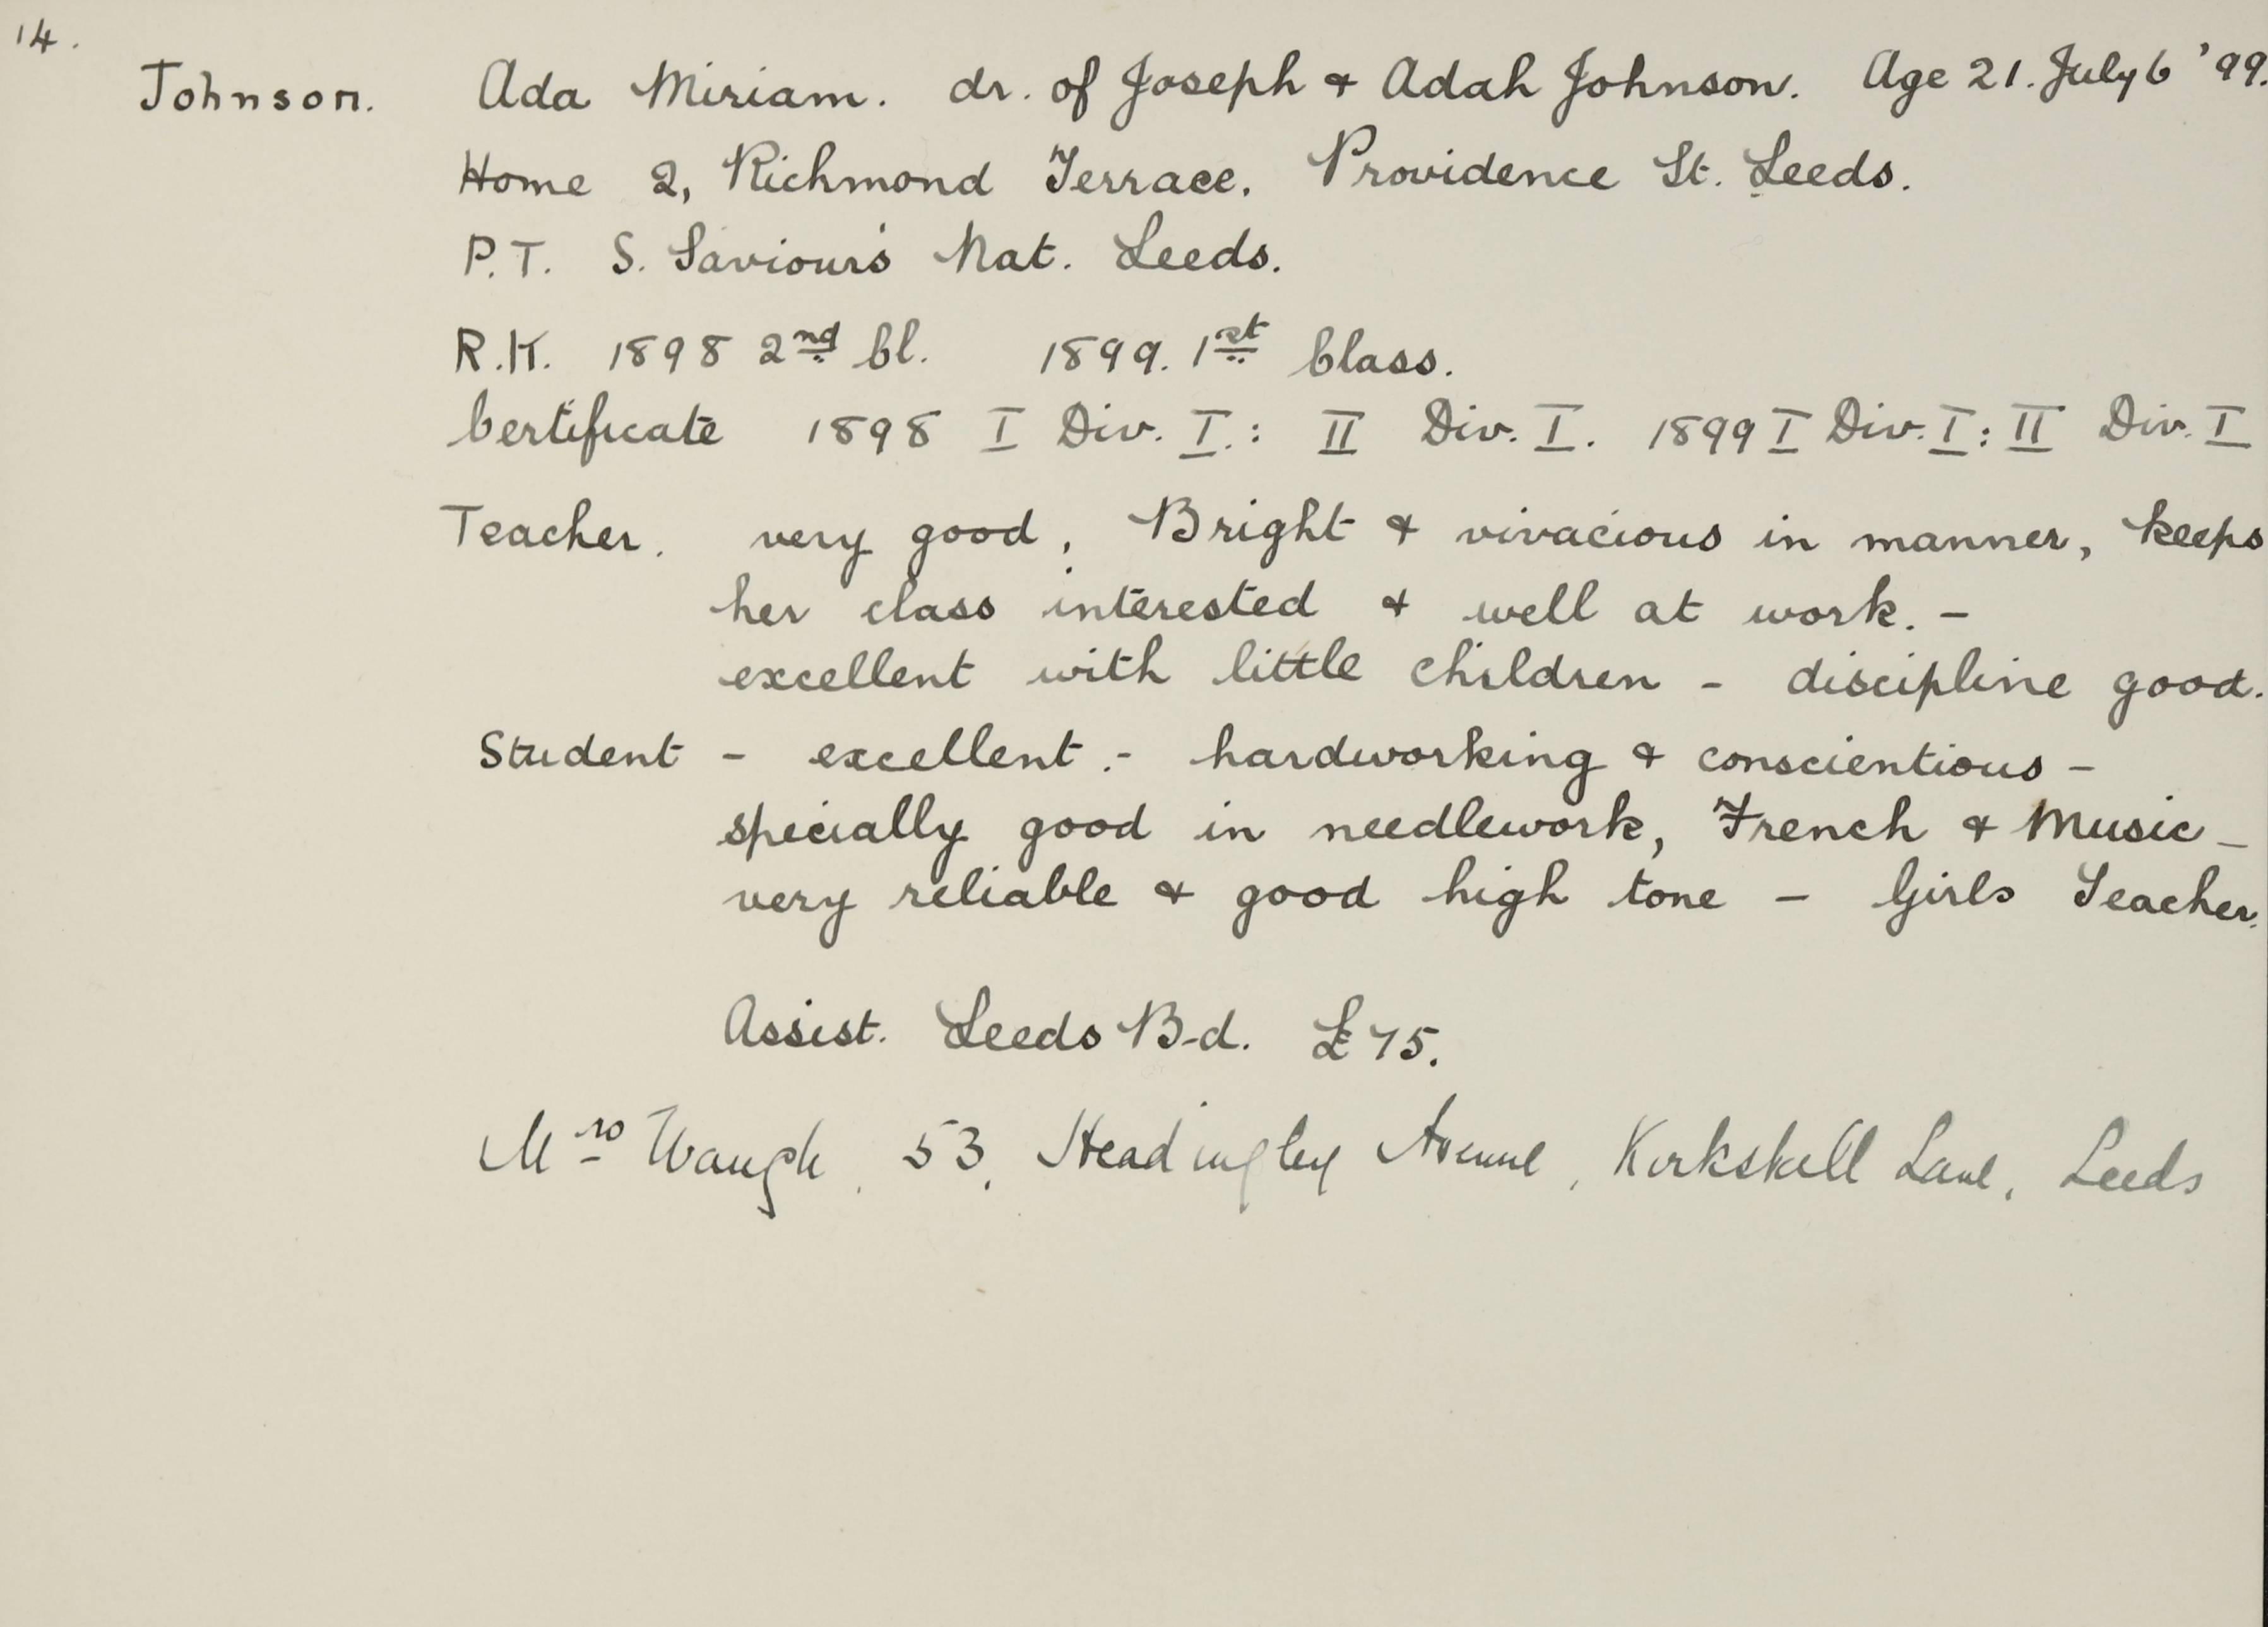 14.
Johnson. Ada Miriam. dr. of Joseph & Adah Johnson. Age 21. July 6 '99.
Home 2, Richmond Terrace, Providence St. Leeds.
P.T. S. Saviour's Nat. Leeds.
R.K. 1898 2nd Cl. 1899. 1st Class.
Certificate 1898 I Div. I.: II Div. I. 1899 I Div. I: II Div. I
Teacher. very good, Bright & vivacious in manner, keeps
her class interested & well at work. -
excellent with little children - discipline good.
Student - excellent.- hardworking & conscientious -
specially good in needlework, French & Music -
very reliable & good high tone - Girls Teacher.
Assist. Leeds B-d. £75.
Mrs Waugh, 53, Headingley Avenue, Kirkstall Lane, Leeds